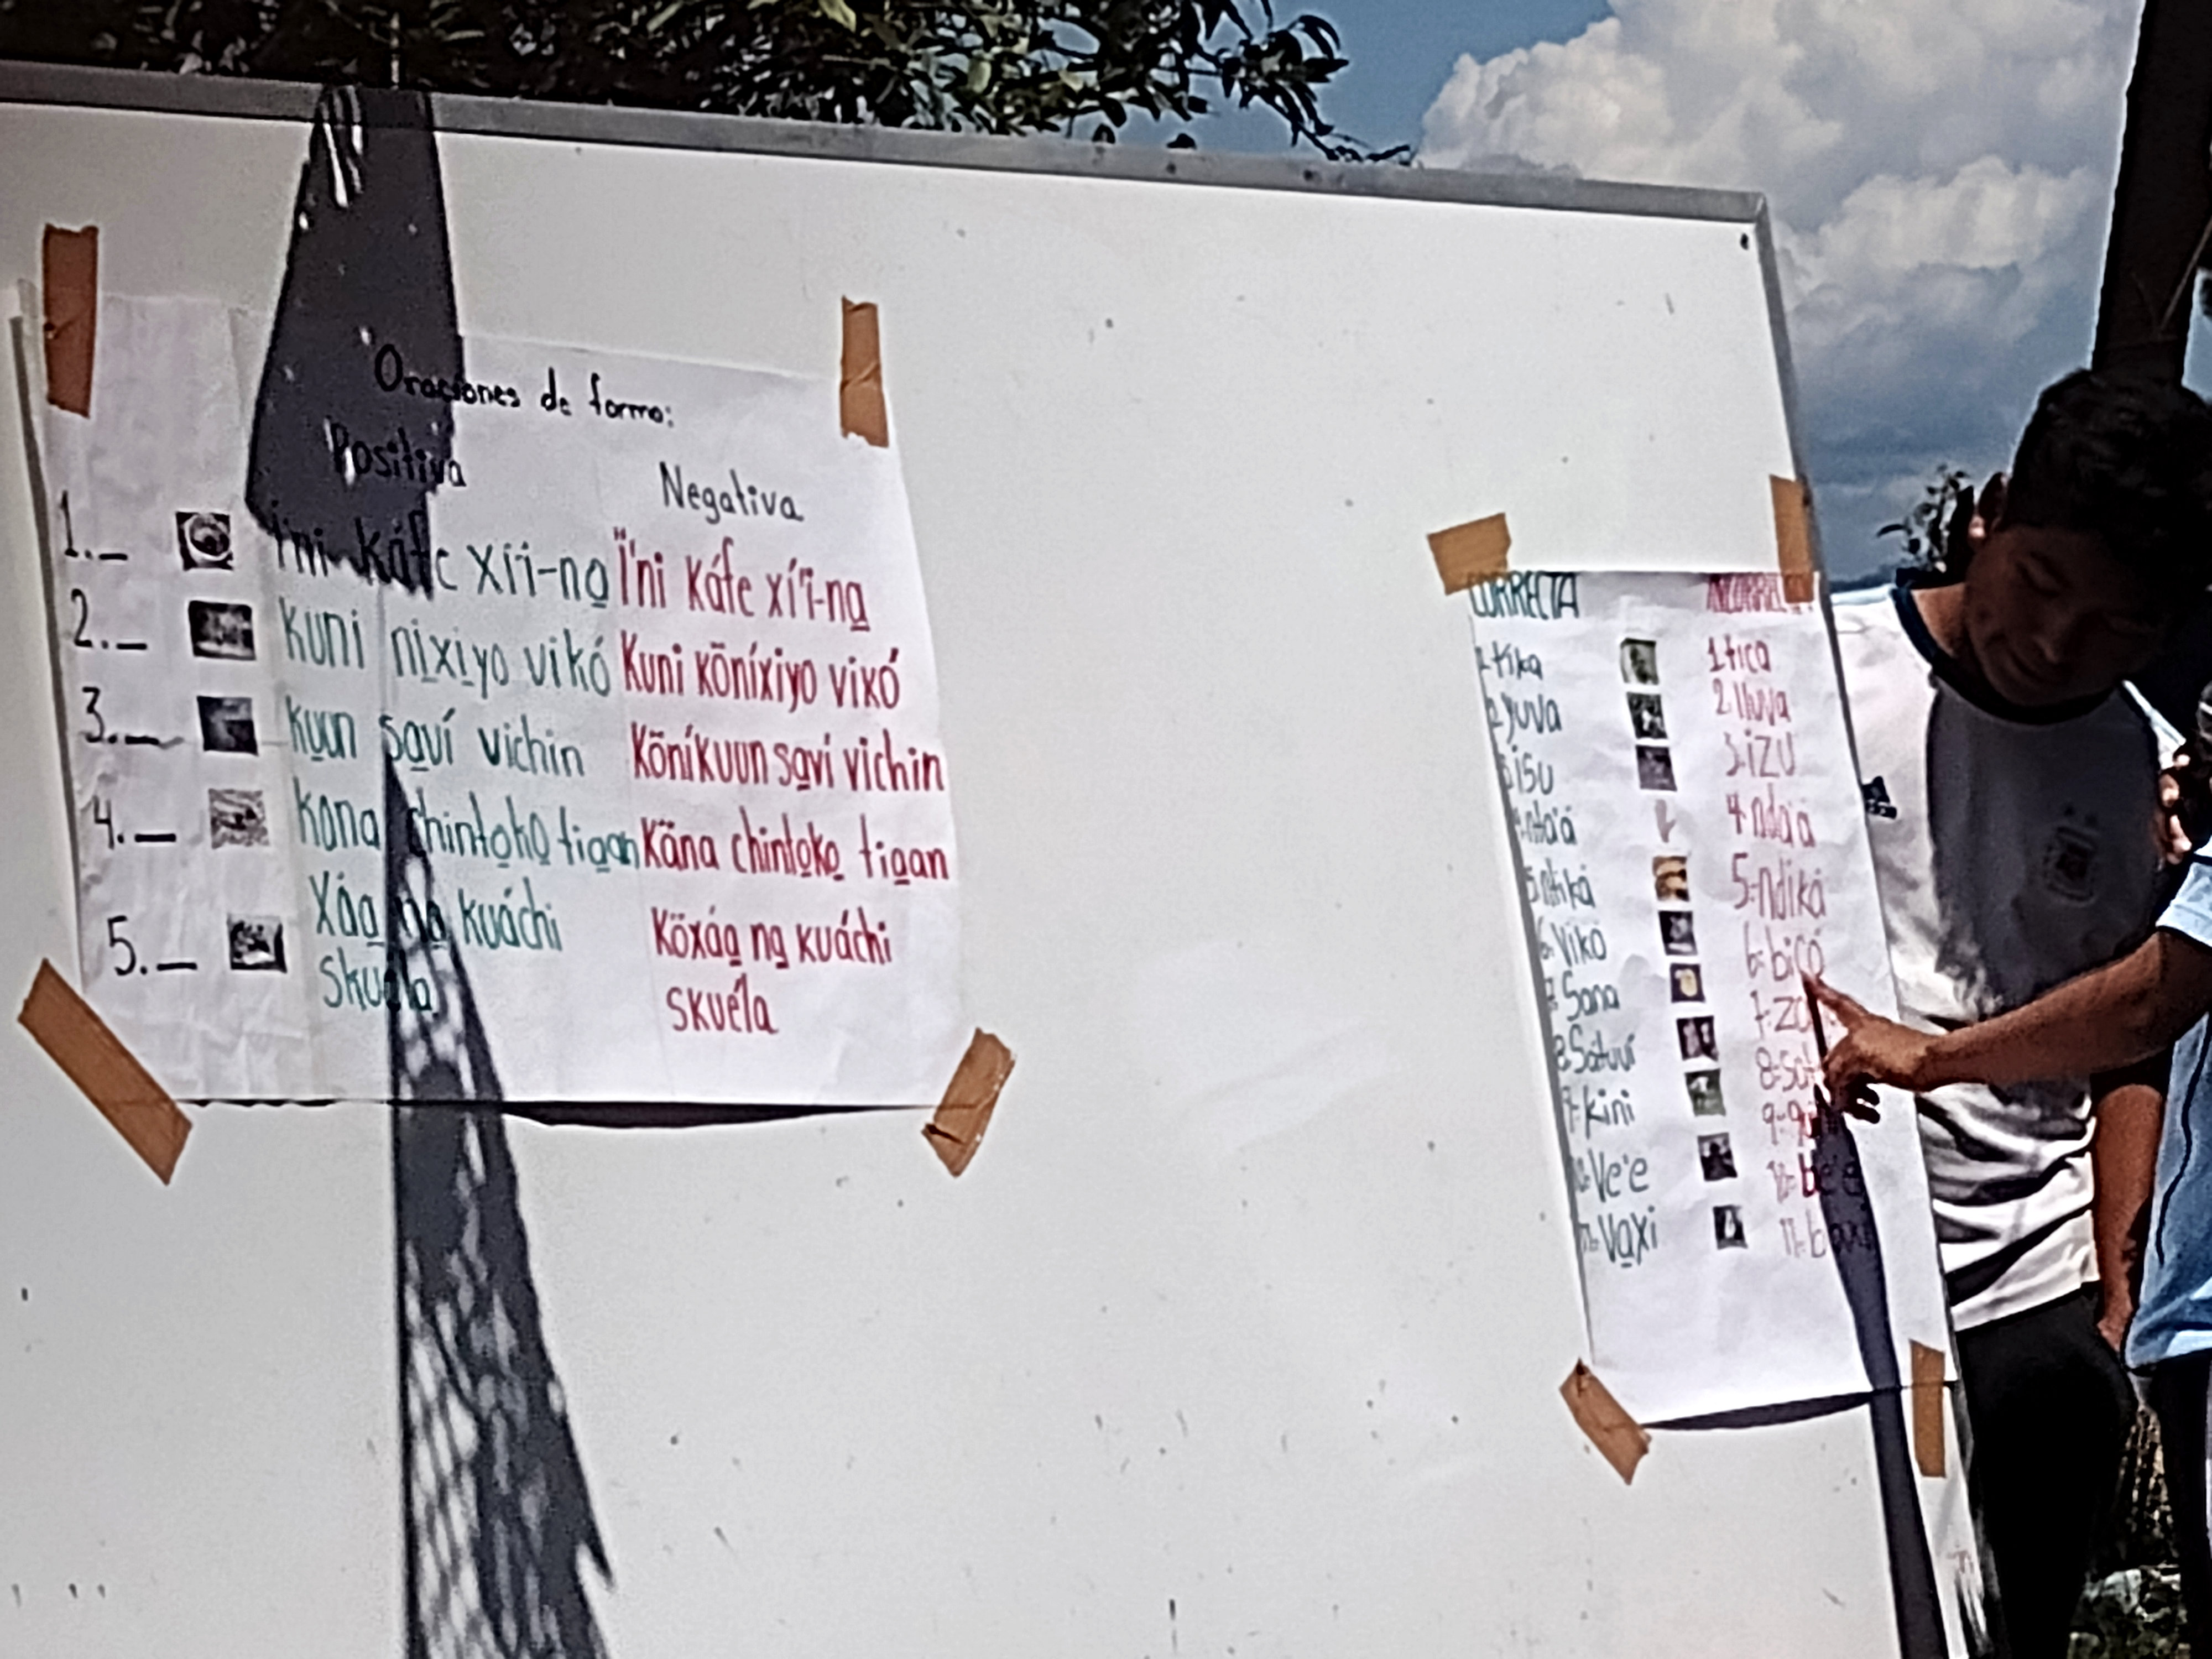 Oraciones de forma:
Positiva
Negativa
1._ I'ni káfe xí'i-na̱ Ï'ni káfe xí'i-na̱
2._ Kuni ni̱xi̱yo vikó Kuni köníxiyo vikó
3._ ku̱un sa̱ví vichin Köníkuun sa̱ví vichin
4._ kana chinto̱ko̱ tia̱an Käna chinto̱ko̱ tia̱an
5._ Xáa̱ na̱ kuáchi Köxáa̱ na̱ kuáchi
Skuéla Skuéla
CORRECTA INCORRECTA
1-tika 1-tica
2-yuva 2-lluva
isu 3-izu
nta'á 4-nda'a
5-ntiká 5-ndiká
6-Vikó 6-bicó
7-Sana
8-Sátuví
9-kini
Ve'e 10-be'e
11-Va̱xi